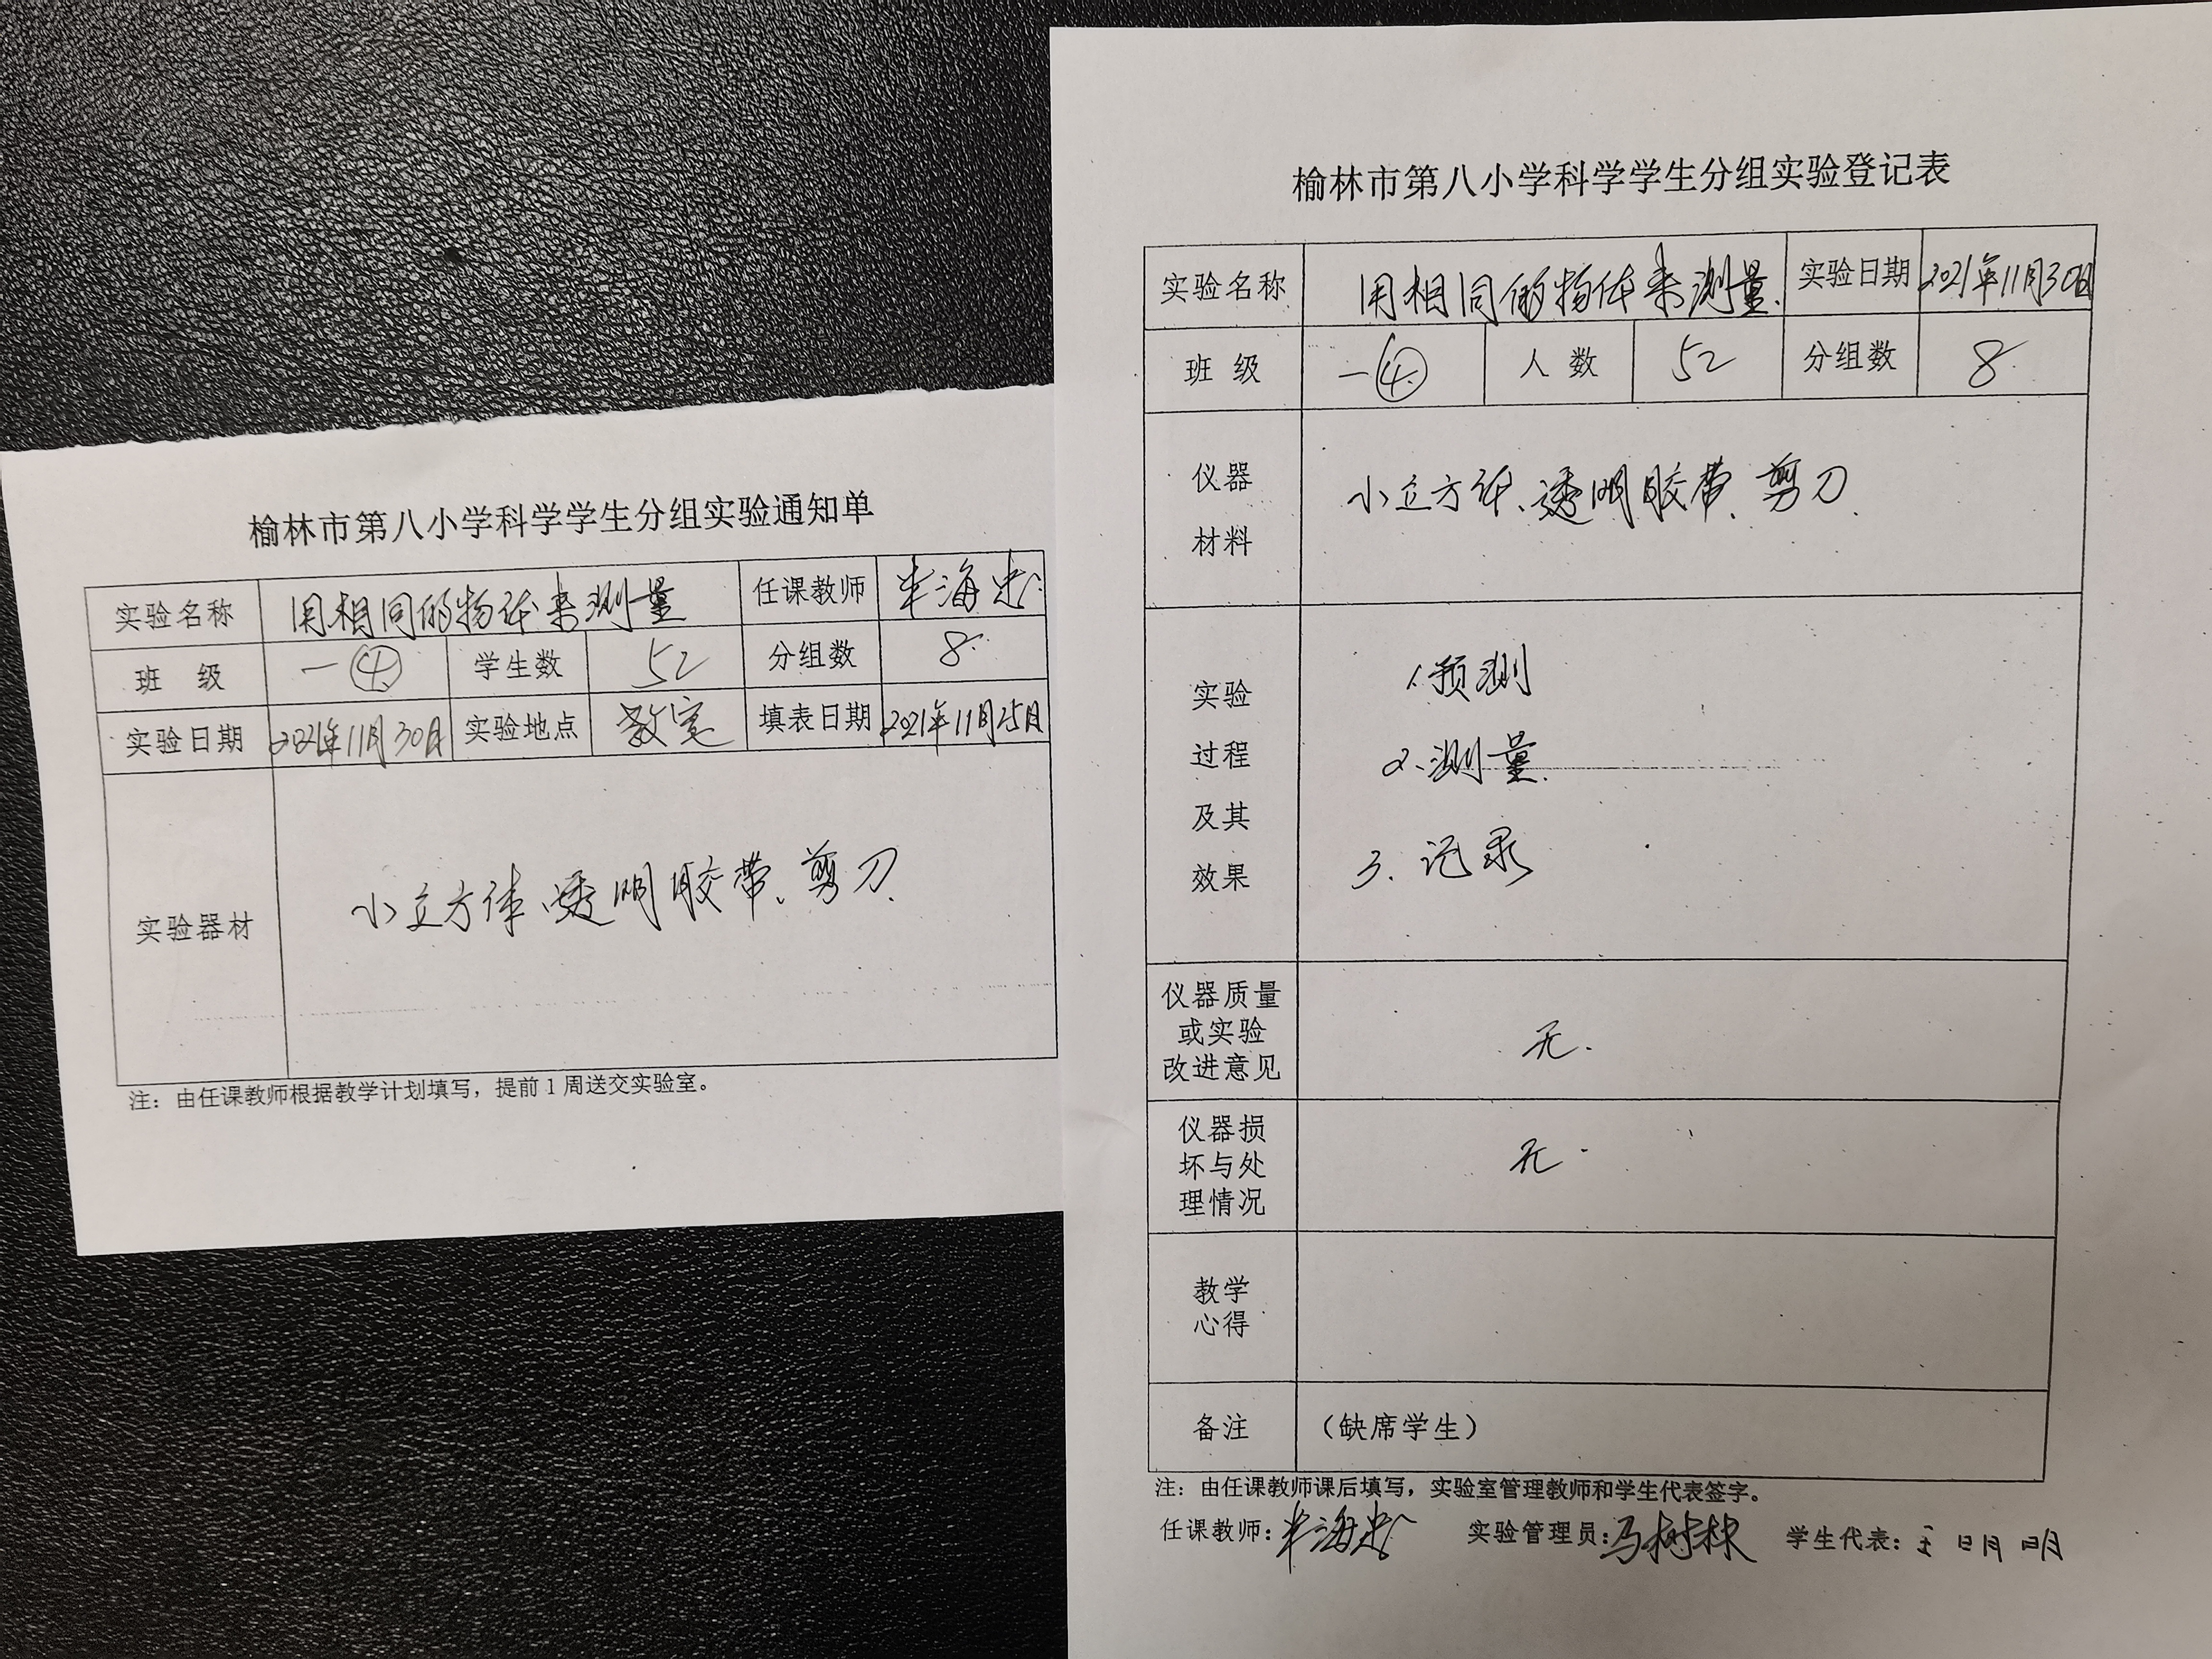 榆林市第八小学科学学生分组实验通知单
实验名称 用相同的物体来测量 任课教师 海忠
班 级 一④ 学生数 52 分组数 8
实验日期 2021年11月30日 实验地点 教室 填表日期 2021年11月25日
实验器材 小立方体、透明胶带、剪刀
注：由任课教师根据教学计划填写，提前1周送交实验室。
榆林市第八小学科学学生分组实验登记表
实验名称 用相同的物体来测量. 实验日期 2021年11月30日
班 级 一④ 人 数 52 分组数 8
仪器
材料
小立方体、透明胶带、剪刀
实验
过程
及其
效果
1.预测
2.测量
3.记录
仪器质量
或实验
改进意见
无.
仪器损
坏与处
理情况
无.
教学
心得
备注 （缺席学生）
注：由任课教师课后填写，实验室管理教师和学生代表签字。
任课教师: 海忠 实验管理员: 马树林 学生代表: 明